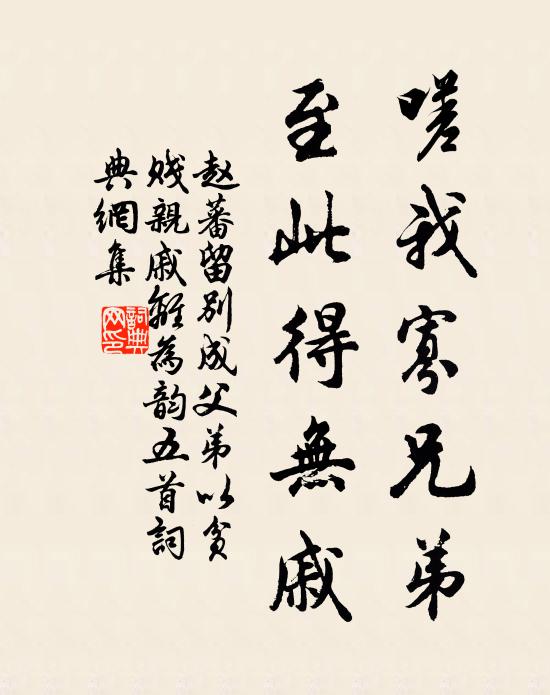 嗟我寡兄弟
至此得無戚
赵蕃留别成父弟以贫
贱親戚離為韵五首詞
典網集
詞典网印